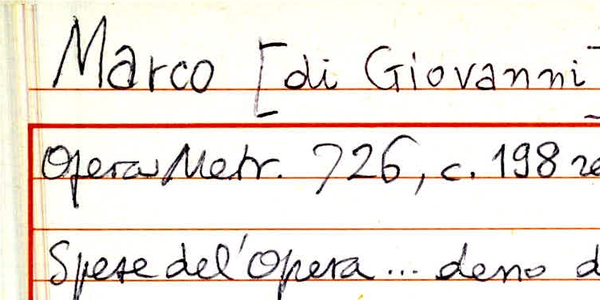 Marco [di Giovanni]
Opera Metr. 726, c. 198
Spese del'Opera ... deno